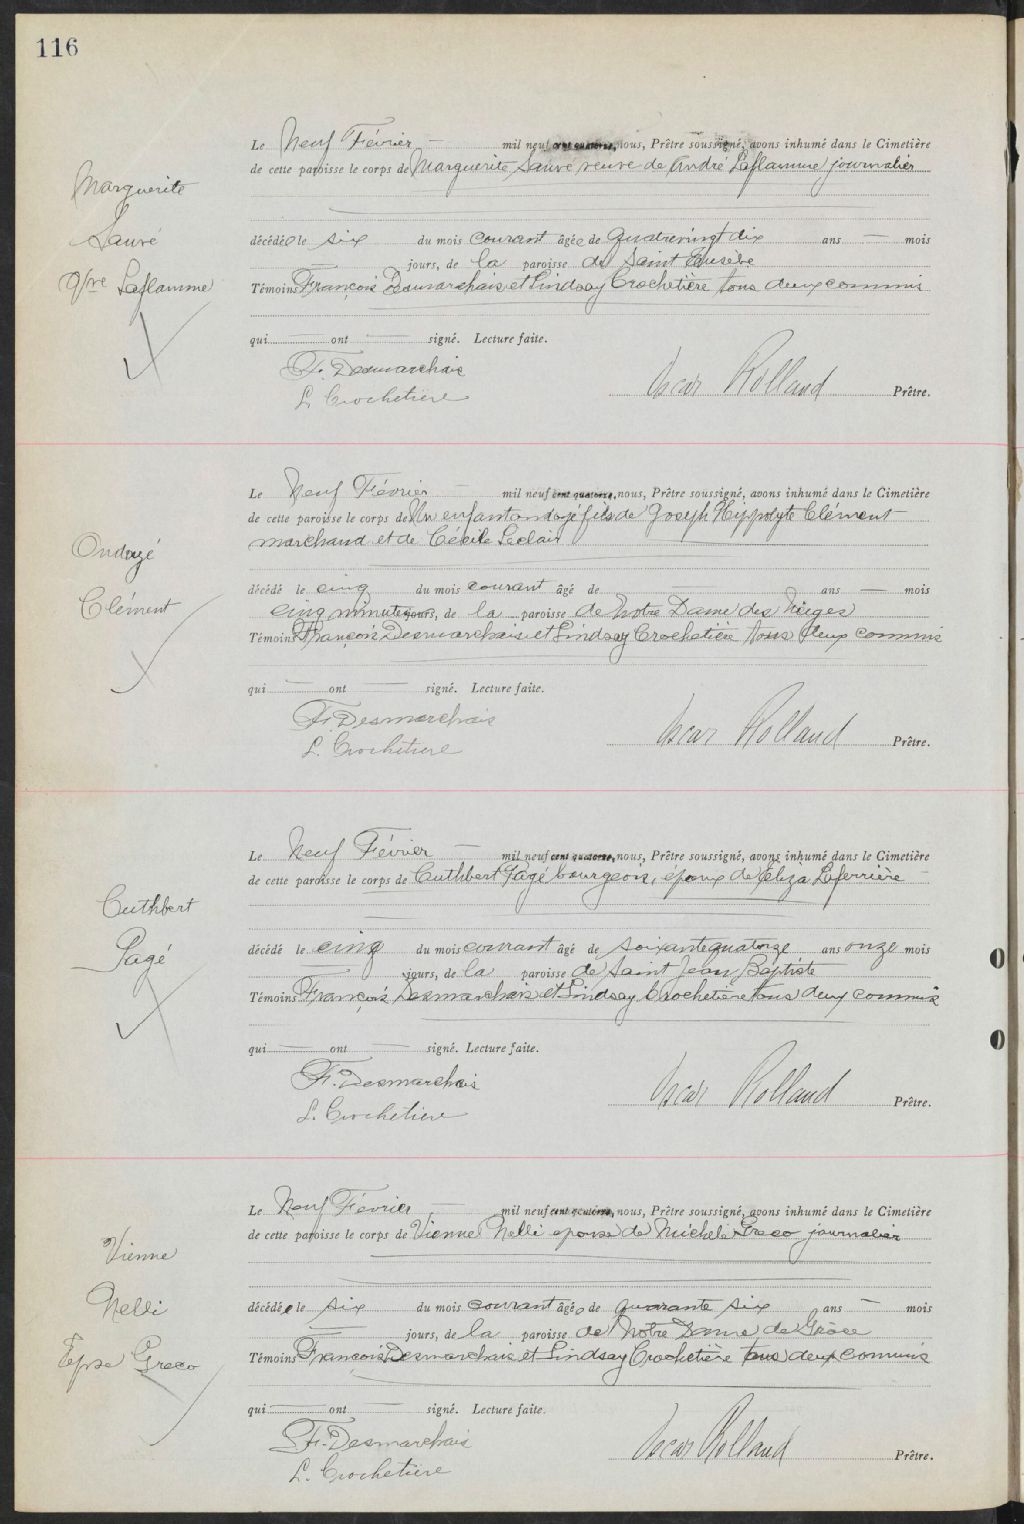 116
Le Neuf Février — mil neuf cent quatorze, nous, Prêtre soussigné, avons inhumé dans le Cimetière
de cette paroisse le corps de Marguerite Sauvé veuve de André Laflamme journalier
Marguerite
Sauvé
Laflamme
décédée le six du mois courant âgée de quatrevingt dix ans — mois
jours, de la paroisse de Saint Eusèbe
Témoins François Desmarchais et Lindsay Crochetière tous deux commis
qui — ont — signé. Lecture faite.
F. Desmarchais
L. Crochetiere
Oscar Rolland Prêtre.
Le Neuf Février — mil neuf cent quatorze, nous, Prêtre soussigné, avons inhumé dans le Cimetière
de cette paroisse le corps de Un enfant ondoyé fils de Joseph Hippolyte Clément
marchand et de Cécile Leclair
Ondoyé
Clément
décédé le cinq du mois courant âgé de — ans — mois
cinq minutes jours, de la paroisse de Notre Dame des Neiges
Témoins François Desmarchais et Lindsay Crochetière tous deux commis
qui — ont — signé. Lecture faite.
F. Desmarchais
L. Crochetiere
Oscar Rolland Prêtre.
Le Neuf Février — mil neuf cent quatorze, nous, Prêtre soussigné, avons inhumé dans le Cimetière
de cette paroisse le corps de Cuthbert Pagé bourgeois, époux de Eliza Laferrière —
Cuthbert
Pagé
décédé le cinq du mois courant âgé de soixantequatorze ans onze mois
— jours, de la paroisse de Saint Jean Baptiste
Témoins François Desmarchais et Lindsay Crochetière tous deux commis
qui — ont — signé. Lecture faite.
F. Desmarchais
L. Crochetiere
Oscar Rolland Prêtre.
Le Neuf Février — mil neuf cent quatorze, nous, Prêtre soussigné, avons inhumé dans le Cimetière
de cette paroisse le corps de Vienne Nelli epouse de Michele Greco journalier
Vienne
Nelli
Epse Greco
décédée le six du mois courant âgée de quarante six ans — mois
— jours, de la paroisse de Notre Dame de Grâce
Témoins François Desmarchais et Lindsay Crochetière tous deux commis
qui — ont — signé. Lecture faite.
F. Desmarchais
L. Crochetiere
Oscar Rolland Prêtre.